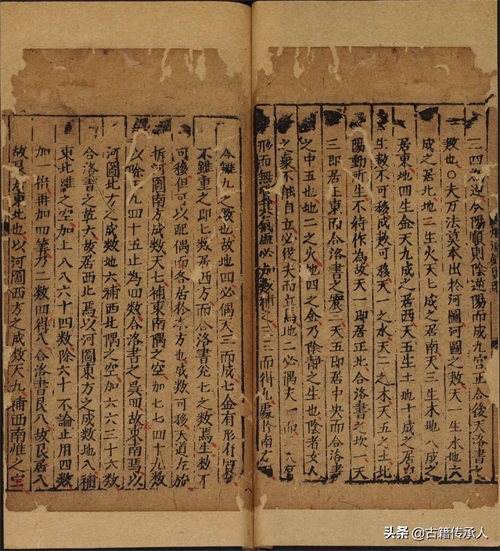 三四 逆分陽順則陰逆陽而成九宮正合後天洛書
數也○大万法莫本出於河圖河圖之数天一生水地六
成之居北地二生火天七成之居南天三生木地八成之
居東地四生金天九成之居西天五生土地十成之居
生数不可移成数可移天一之水天三之木天五之土北
陽動所生不待作為故天一即居正北合洛書之坎一天
三即居上東而合洛書之震三天五即居中央而合洛書
之中五也地二之火地四之金乃陰静之生也陰者女人
之象不能自立必後夫而立焉地二必偶天一
形而無 三而得九 於南
合離九之数也故地四必偶天三而成七金有形行有
不離重之即七数居西方而合洛書兊七之数焉生数不
可移但可以配偶而各居於本方也成数可移天道左旅
拆河圖南方成数天七補東南隅之空加七七四十九数
以除 九四十五止為四数合洛書之巽四故東南焉以
河圖北方之成数地六補西北隅之空加六六三十六数
合洛書之草六故居西北焉以河圖東方之成数地八補
東北離之空加上八八六十四数除六十不論止用四数
加一倍再加四筆乃二数四得八合洛書艮八故艮居八
故 東北也以河圖西方之成数天九補西南維之空
头条 @古籍传承人